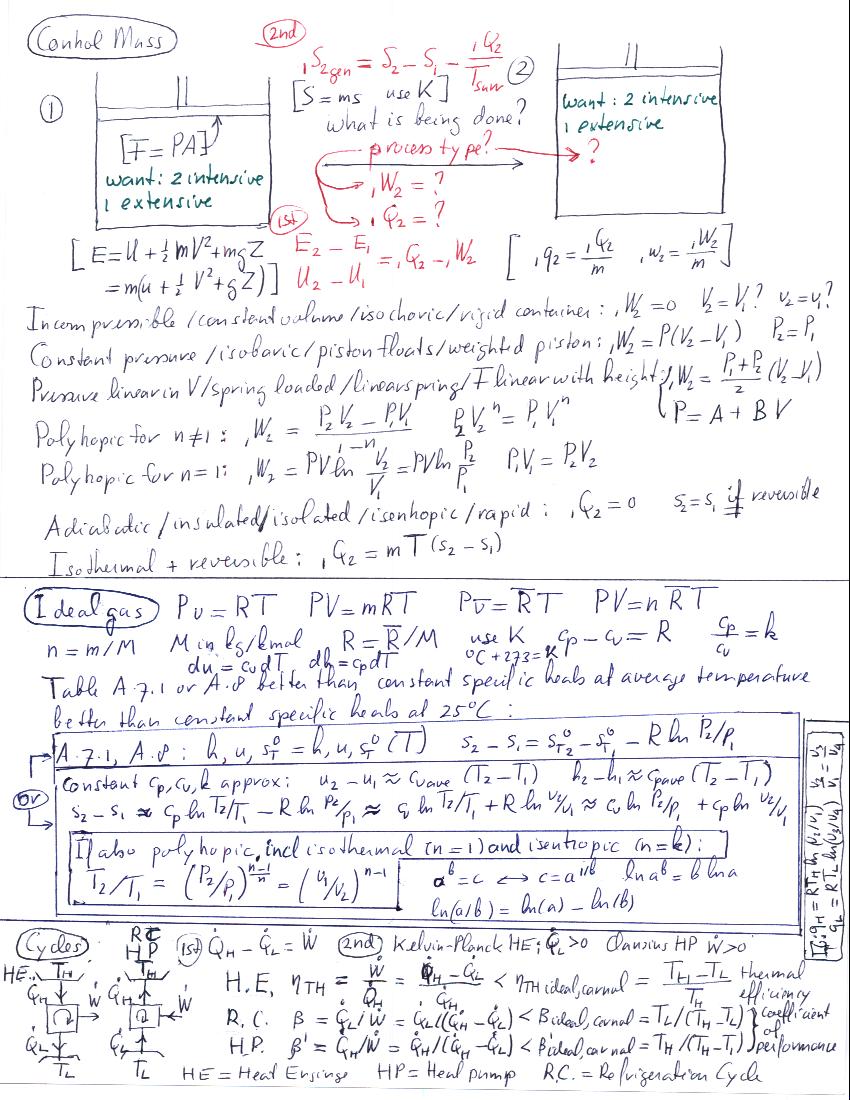 Control Mass
2nd
₁S₂gen = S₂ − S₁ − ₁Q₂/Tsurr
[S = ms use K]
what is being done?
process type? → ?
₁W₂ = ?
₁Q₂ = ?
①
[F = PA]
want: 2 intensive
1 extensive
②
want: 2 intensive
1 extensive
1st
E₂ − E₁
U₂ − U₁ = ₁Q₂ − ₁W₂
[E = U + ½ mV² + mgZ
= m(u + ½ V² + gZ)]
[₁q₂ = ₁Q₂/m ₁w₂ = ₁W₂/m]
Incompressible/constant volume/isochoric/rigid container: ₁W₂ = 0 V₂ = V₁? υ₂ = υ₁?
Constant pressure/isobaric/piston floats/weighted piston: ₁W₂ = P(V₂ − V₁) P₂ = P₁
Pressure linear in V/spring loaded/linear spring/F linear with height: ₁W₂ = (P₁ + P₂)/2 (V₂ − V₁)
P = A + BV
Polytropic for n≠1: ₁W₂ = (P₂V₂ − P₁V₁)/(1 − n) P₂V₂ⁿ = P₁V₁ⁿ
Polytropic for n=1: ₁W₂ = PV ln V₂/V₁ = PV ln P₂/P₁ P₁V₁ = P₂V₂
Adiabatic/insulated/isolated/isentropic/rapid: ₁Q₂ = 0 s₂ = s₁ if reversible
Isothermal + reversible: ₁Q₂ = mT(s₂ − s₁)
Ideal gas Pυ = RT PV = mRT Pῡ = R̄T PV = nR̄T
n = m/M M in kg/kmol R = R̄/M use K cp − cυ = R cp/cυ = k
du = cυdT dh = cpdT °C + 273 = K
Table A.7.1 or A.8 better than constant specific heats at average temperature
better than constant specific heats at 25°C:
or
A.7.1, A.8: h, u, s⁰T = h, u, s⁰T (T) s₂ − s₁ = s⁰T2 − s⁰T1 − R ln P₂/P₁
Constant cp, cυ, k approx: u₂ − u₁ ≈ cυave (T₂ − T₁) h₂ − h₁ ≈ cpave (T₂ − T₁)
s₂ − s₁ ≈ cp ln T₂/T₁ − R ln P₂/P₁ ≈ cυ ln T₂/T₁ + R ln υ₂/υ₁ ≈ cυ ln P₂/P₁ + cp ln υ₂/υ₁
If also polytropic, incl isothermal (n=1) and isentropic (n=k):
T₂/T₁ = (P₂/P₁)^((n−1)/n) = (υ₁/υ₂)^(n−1)
aᵇ = c ↔ c = a^(1/b) ln aᵇ = b ln a
ln(a/b) = ln(a) − ln(b)
qH = RTH ln(υ₂/υ₁) υ₂/υ₁ = υ₃/υ₄
qL = RTL ln(υ₃/υ₄)
Cycles
RC
HP
1st Q̇H − Q̇L = Ẇ 2nd Kelvin-Planck HE: Q̇L > 0 Clausius HP Ẇ > 0
HE: TH TH
Q̇H Ẇ Q̇H Ẇ
Q̇L Q̇L
TL TL
H.E. ηTH = Ẇ/Q̇H = (Q̇H − Q̇L)/Q̇H < ηTH ideal, carnot = (TH − TL)/TH thermal efficiency
R.C. β = Q̇L/Ẇ = Q̇L/(Q̇H − Q̇L) < βideal, carnot = TL/(TH − TL)
H.P. β' = Q̇H/Ẇ = Q̇H/(Q̇H − Q̇L) < β'ideal, carnot = TH/(TH − TL)
} coefficient of performance
HE = Heat Enginge HP = Heat pump R.C. = Refrigeration Cycle